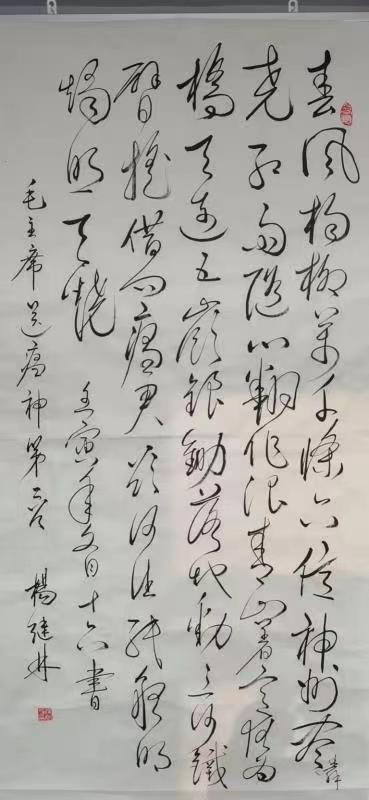 春風楊柳萬千條六億神州盡舜
堯紅雨随心翻作浪青山着意化為
橋天連五嶺銀鋤落地動三河鐵
臂搖借问瘟君欲何往紙船明
燭照天燒 壬寅年月十六書
毛主席送瘟神第二首 楊继林